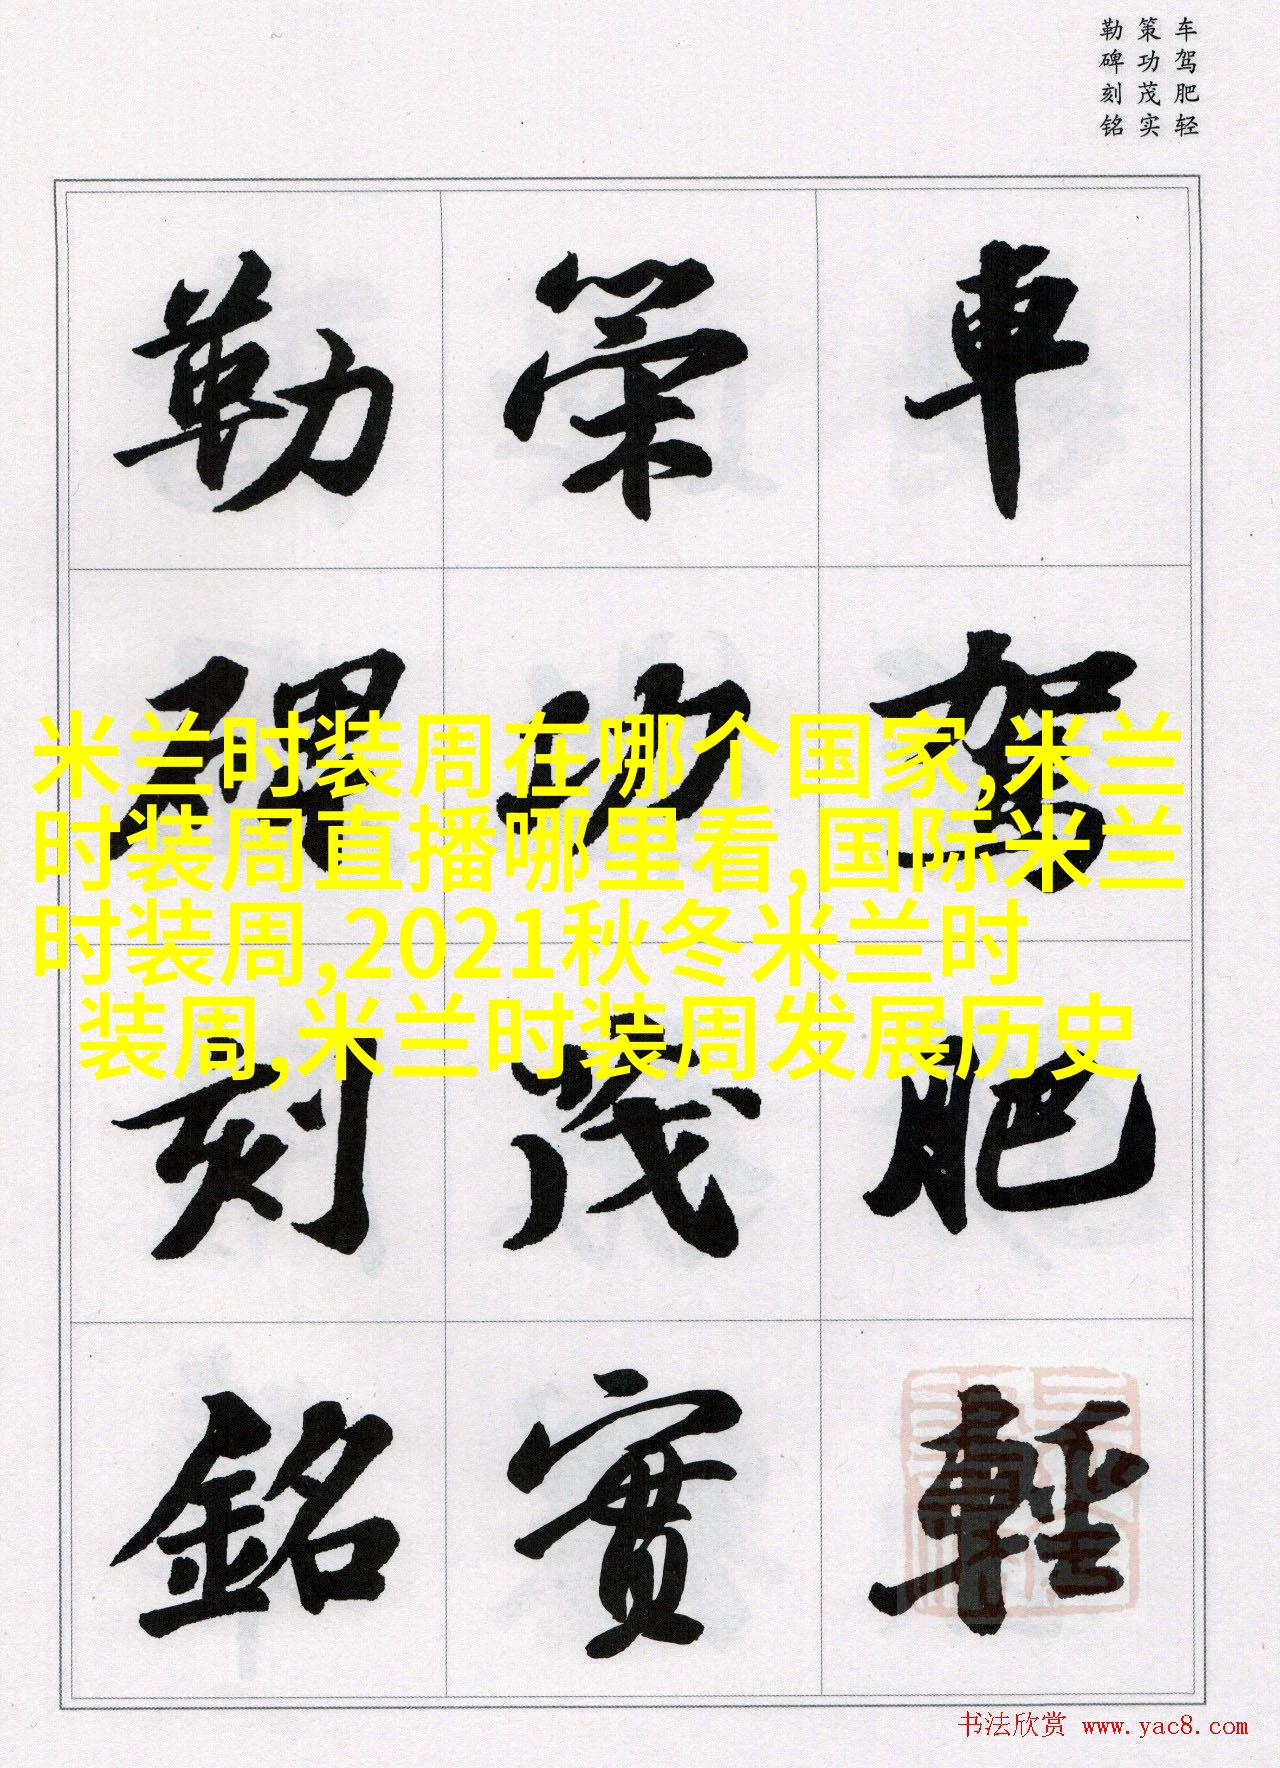 车驾肥轻
策功茂实
勒碑刻铭
車駕肥輕
策功茂實
勒碑刻銘
米兰时装周在哪个国家,米兰
时装周直播哪里看,国际米兰
时装周,2021秋冬米兰时
装周,米兰时装周发展历史
书法欣赏 www.yac8.com